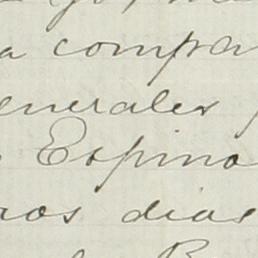 a compa
enerales
Espino
ros dias